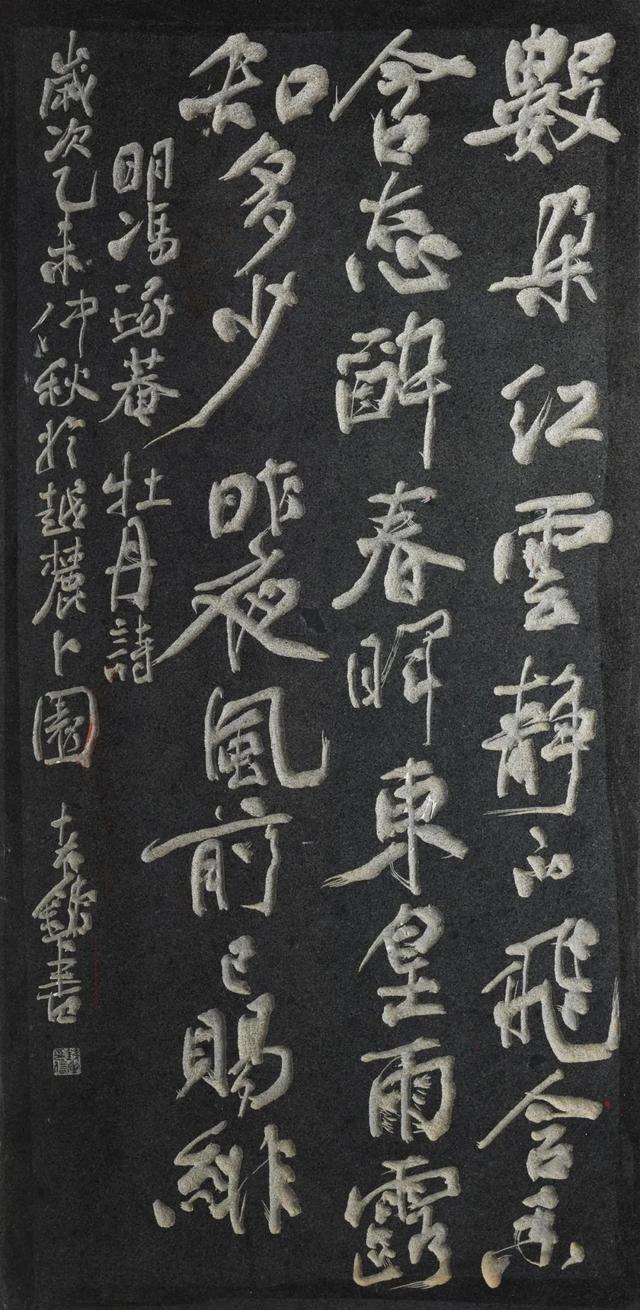 數朵紅雲靜不飛含香
含態醉春暉東皇雨露
知多少 昨夜風前已賜緋
明馮琢菴牡丹詩
歲次乙未仲秋於越麓卜園 書